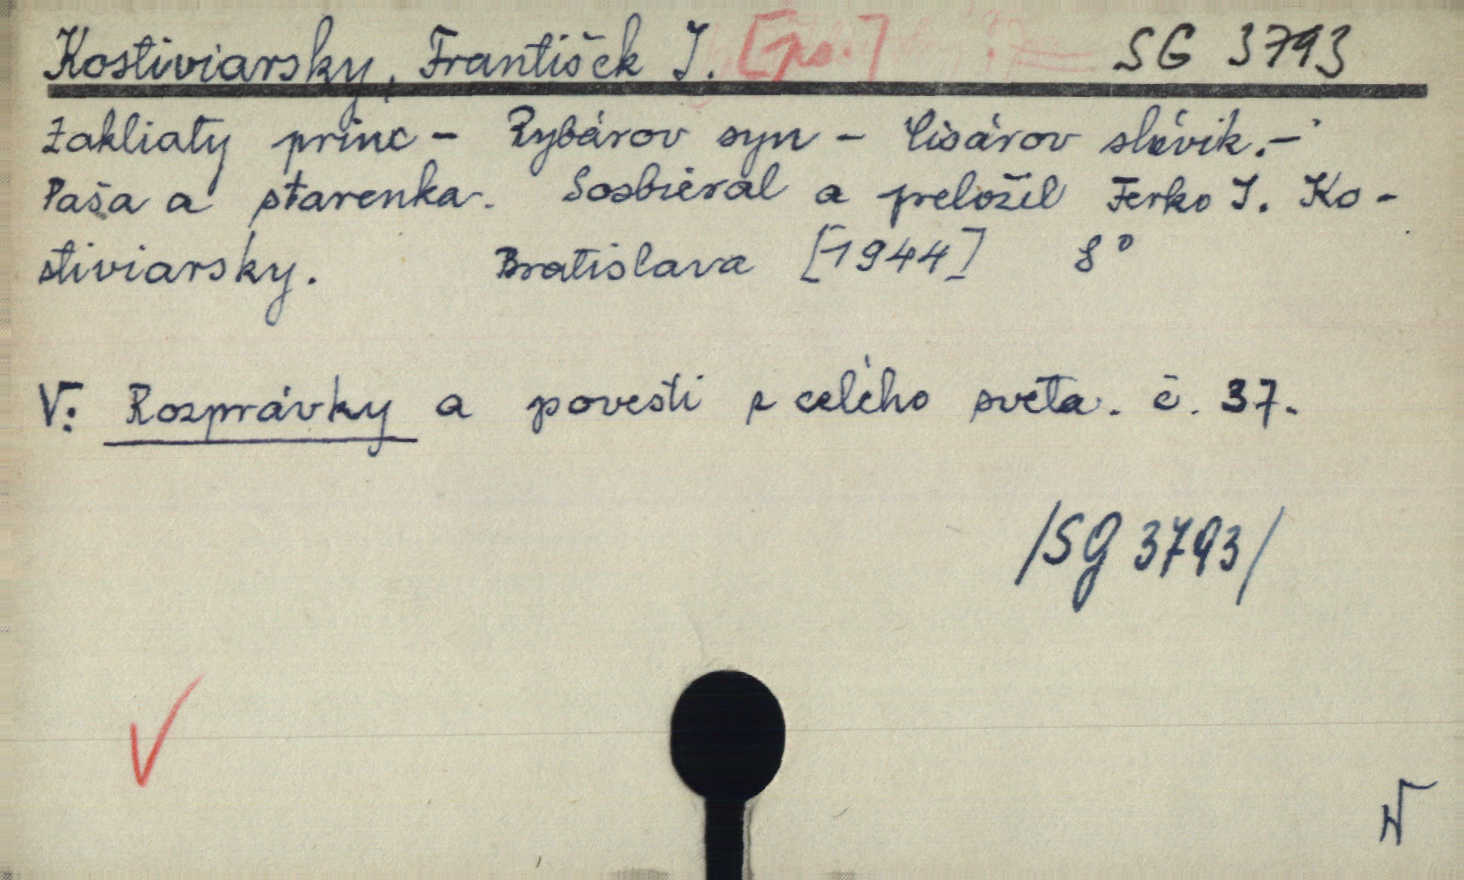 Kostiviarsky, František J. [ps.] SG 3793
Zakliaty princ - Rybárov syn - Cisárov slávik. -
Paša a starenka. Sosbieral a preložil Ferko J. Ko-
stiviarsky. Bratislava [1944] 8°
V: Rozprávky a povesti z celého sveta. č. 37.
/SG 3793/